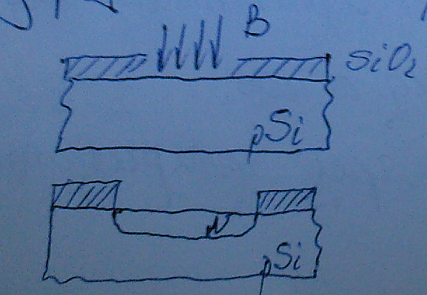 B
SiO₂
pSi
N
pSi